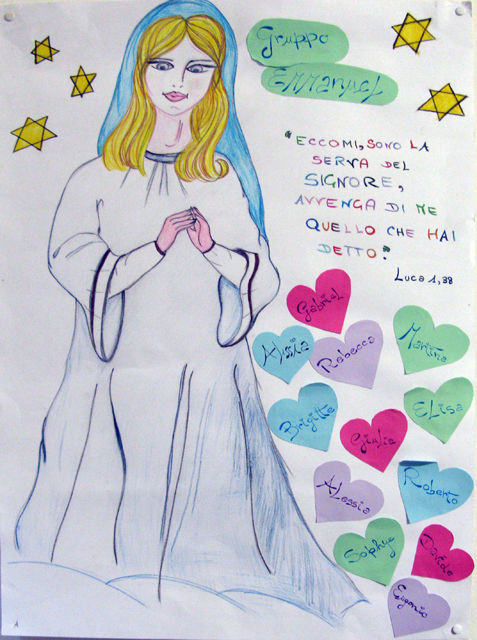 Gruppo
Emmanuel
"ECCOMI, SONO LA
SERVA DEL
SIGNORE,
AVVENGA DI ME
QUELLO CHE HAI
DETTO".
Luca 1,38
Gabriel
Alissia
Rebecca
Martina
Brigitte
Giulia
ELisa
ALessia
Roberto
Solphye
Davide
Eugenio
A